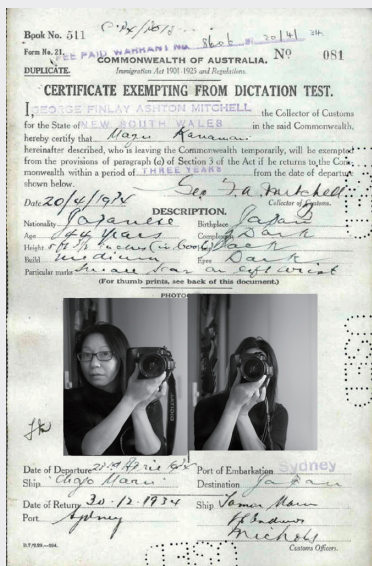 Book No. 511
Form No. 21.
FEE PAID WARRANT No. 20/4/34
COMMONWEALTH OF AUSTRALIA. No 081
DUPLICATE.
Immigration Act 1901-1925 and Regulations.
CERTIFICATE EXEMPTING FROM DICTATION TEST.
I, GEORGE FINLAY ASHTON MITCHELL the Collector of Customs
for the State of NEW SOUTH WALES in the said Commonwealth,
hereby certify that
hereinafter described, who is leaving the Commonwealth temporarily, will be exempted
from the provisions of paragraph (a) of Section 3 of the Act if he returns to the Com-
monwealth within a period of THREE YEARS from the date of departure
shown below.
Geo F.A. Mitchell
Date 20/4/1934 Collector of Customs.
DESCRIPTION.
Nationality Japanese Birthplace Japan
Age 44 years Complexion Dark
Height 5ft 3 inches (in boots)
Build medium Eyes Dark
Particular marks Square scar on left wrist
(For thumb prints, see back of this document.)
PHOTO
Date of Departure Port of Embarkation Sydney
Ship Maru Destination Japan
Date of Return 30-12-1934 Ship Maru
Port Sydney
Nichols
Customs Officers.